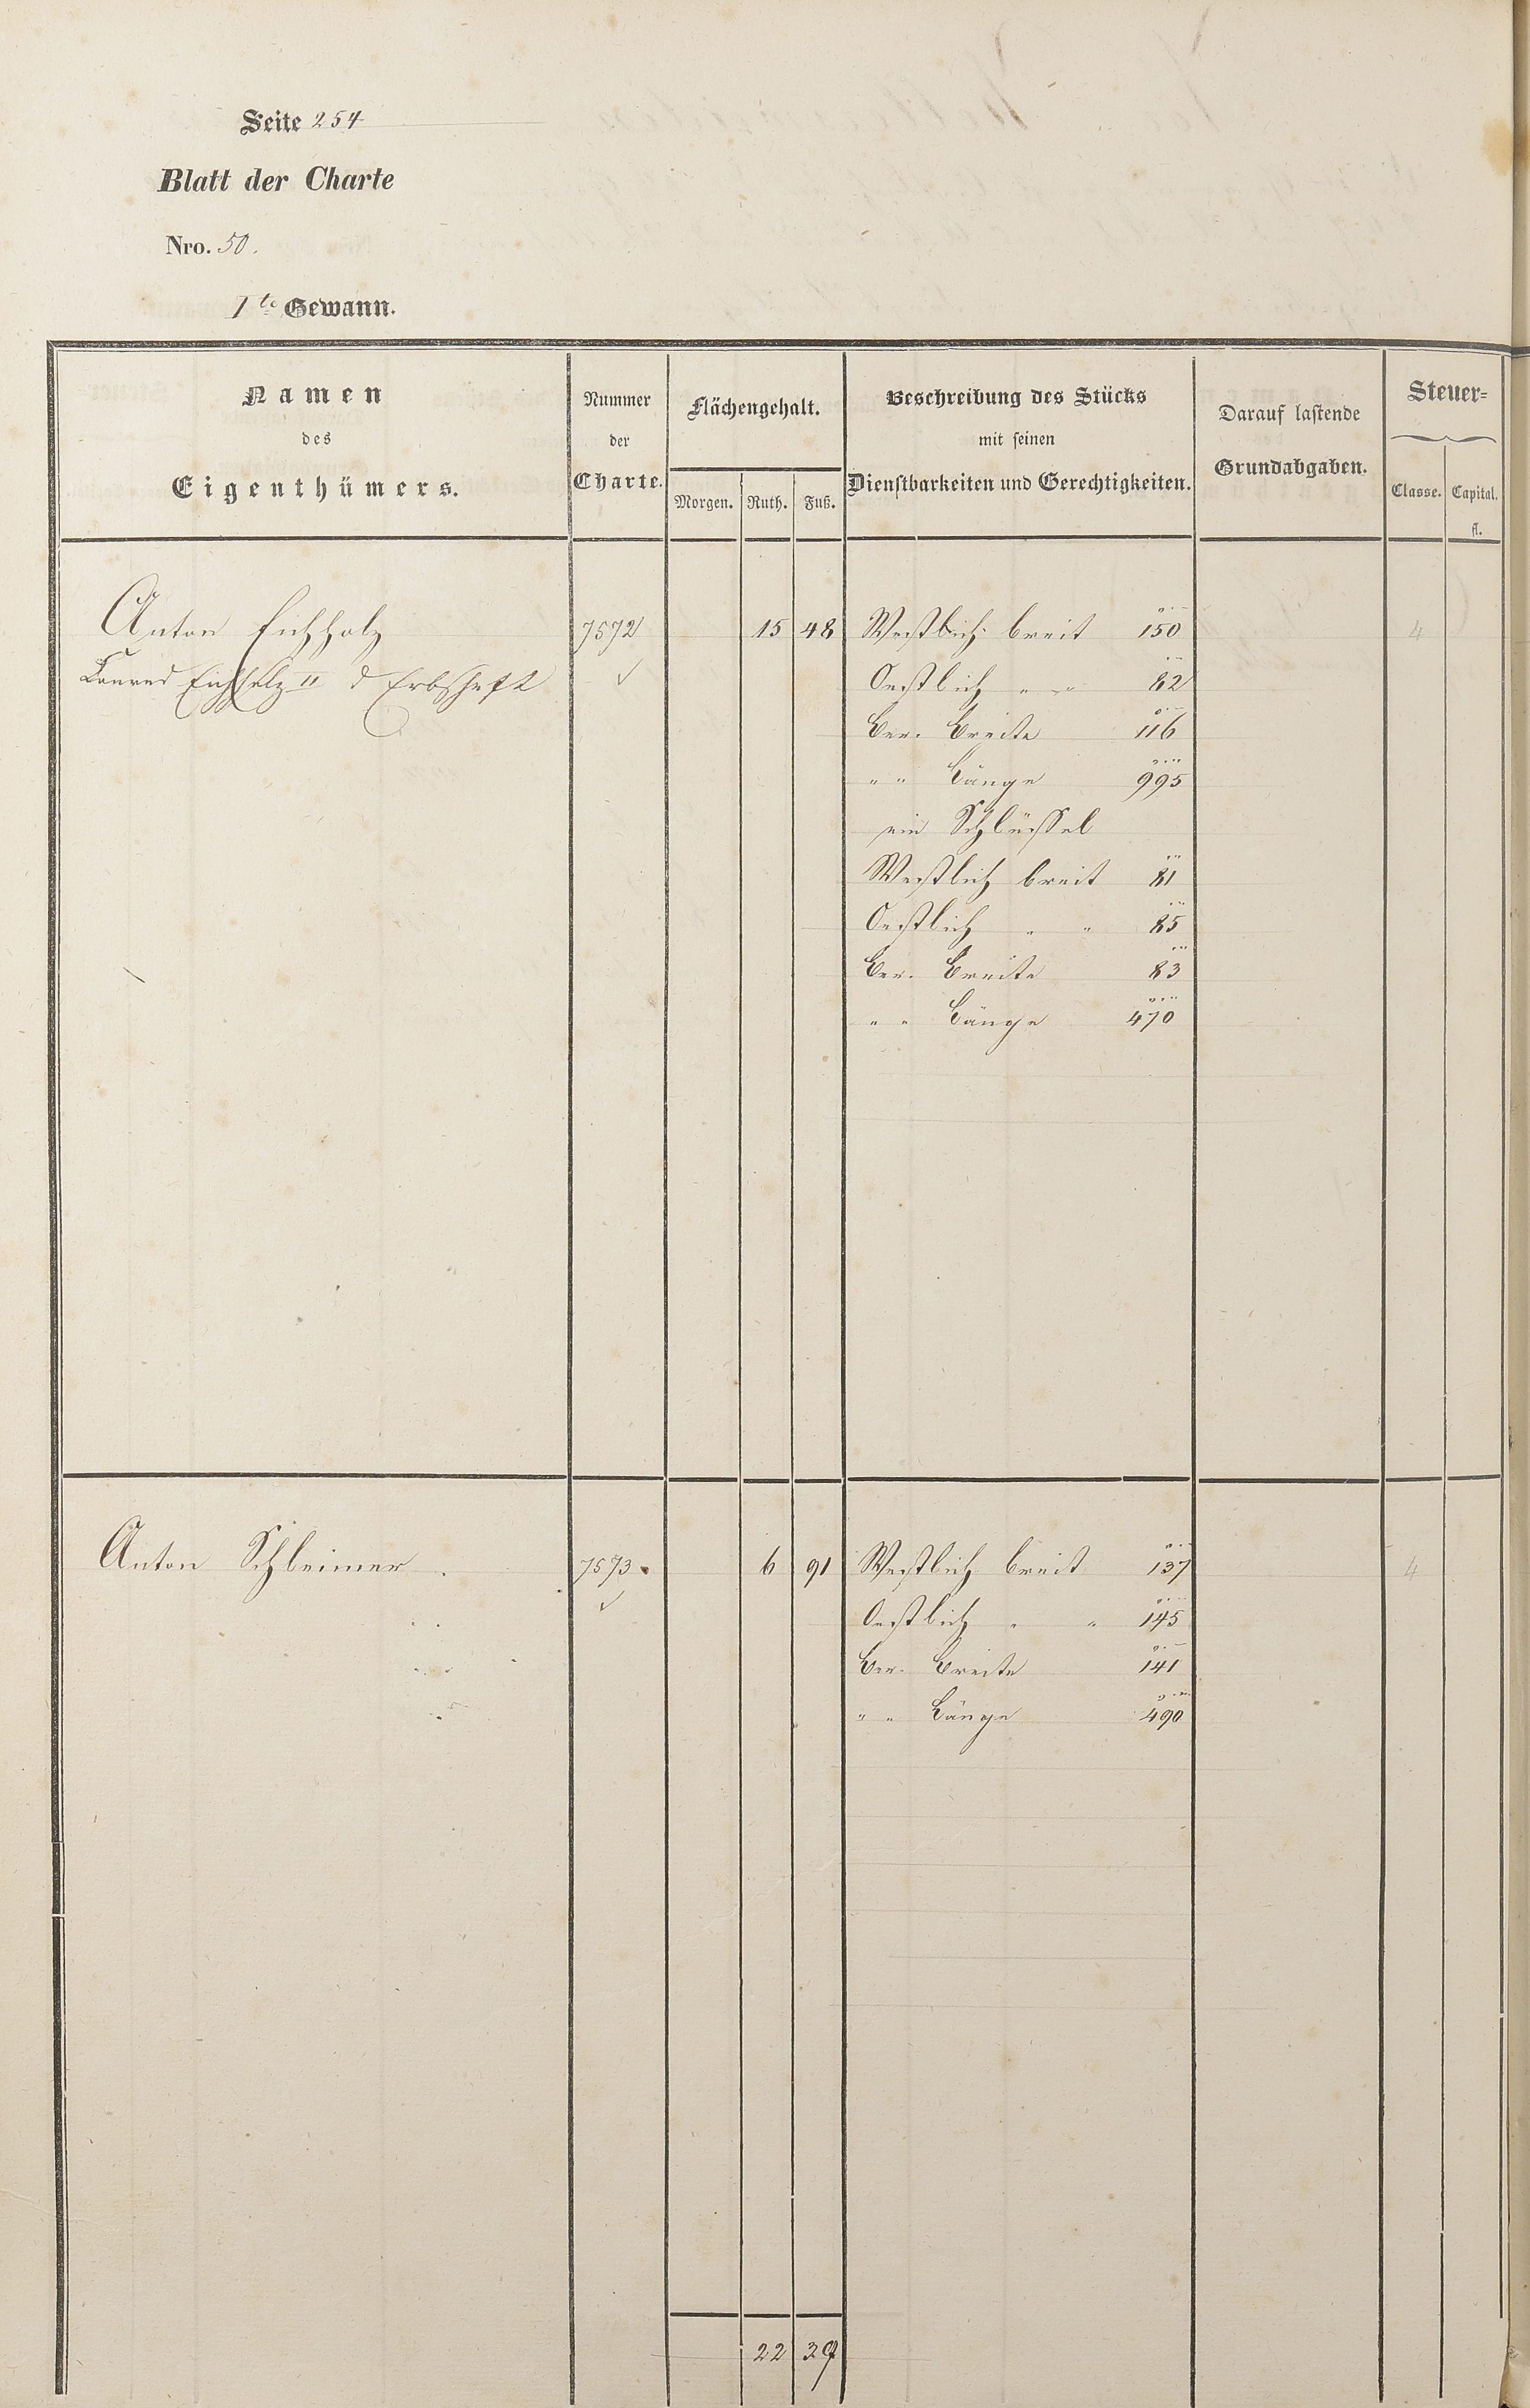 Seite 254
Blatt der Charte
Nro. 50.
7te Gewann.
Namen des Eigenthümers.
Nummer der Charte.
Flächengehalt.
Morgen. Ruth. Fuß.
Beschreibung des Stücks mit seinen Dienstbarkeiten und Gerechtigkeiten.
Darauf lastende Grundabgaben.
Steuer=
Classe. Capital. fl.
Anton Eichholz 7572 15 48 Westlich breit 150 4
Conrad Eichholz II d Erbschaft ✓ Oestlich " " 82
Ber. Breite 116
" " Länge 995
ein Schlüssel
Westlich breit 81
Oestlich " " 85
Ber. Breite 83
" " Länge 470
Anton Schleimer 7573. 6 91 Westlich breit 137 4
✓ Oestlich " " 145
Ber. Breite 141
" " Länge 490
22 39